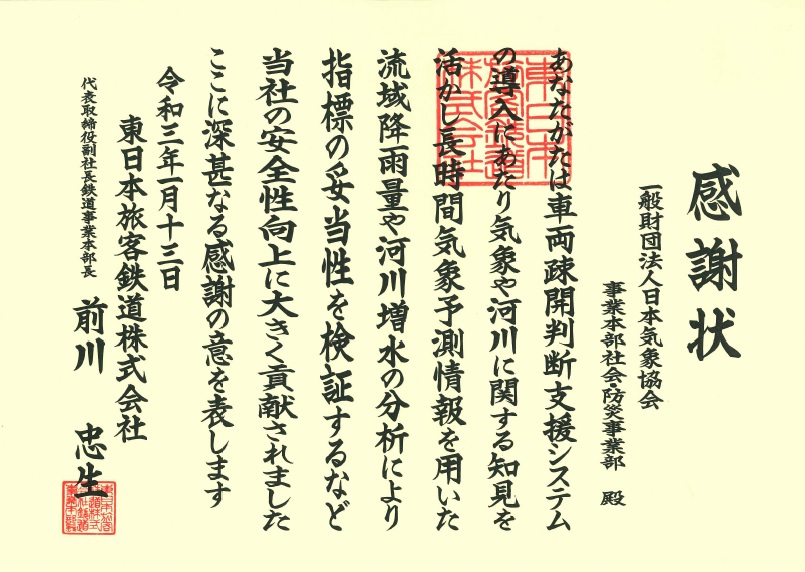 感謝状
一般財団法人日本気象協会
事業本部社会・防災事業部 殿
あなたがたは車両疎開判断支援システム
の導入にあたり気象や河川に関する知見を
活かし長時間気象予測情報を用いた
流域降雨量や河川増水の分析により
指標の妥当性を検証するなど
当社の安全性向上に大きく貢献されました
ここに深甚なる感謝の意を表します
令和三年一月十三日
東日本旅客鉄道株式会社
代表取締役副社長鉄道事業本部長
前川 忠生
東日本
旅客鉄道
株式会社